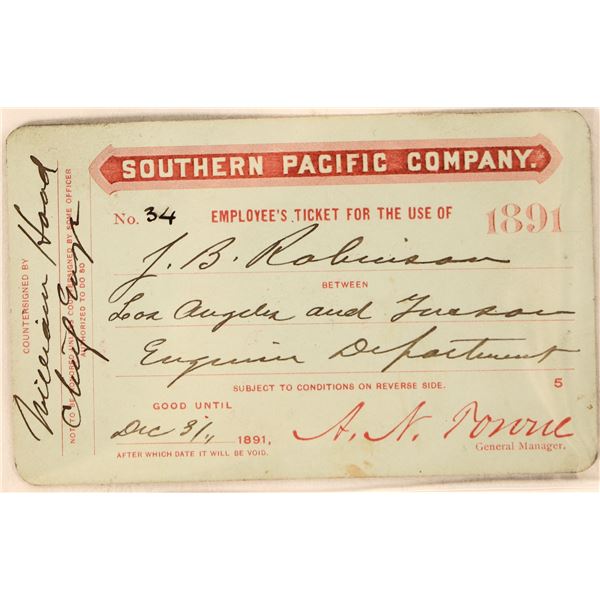 SOUTHERN PACIFIC COMPANY.
No. 34 EMPLOYEE'S TICKET FOR THE USE OF 1891
J. B. Robinson
BETWEEN
Los Angeles and Tucson
Engineer Department
SUBJECT TO CONDITIONS ON REVERSE SIDE. 5
GOOD UNTIL
Dec 31, 1891,
AFTER WHICH DATE IT WILL BE VOID.
A. N. Towne
General Manager.
COUNTERSIGNED BY
William Hood
Chf Engr
NOT TO BE HONORED UNLESS COUNTERSIGNED BY SOME OFFICER
AUTHORIZED TO DO SO